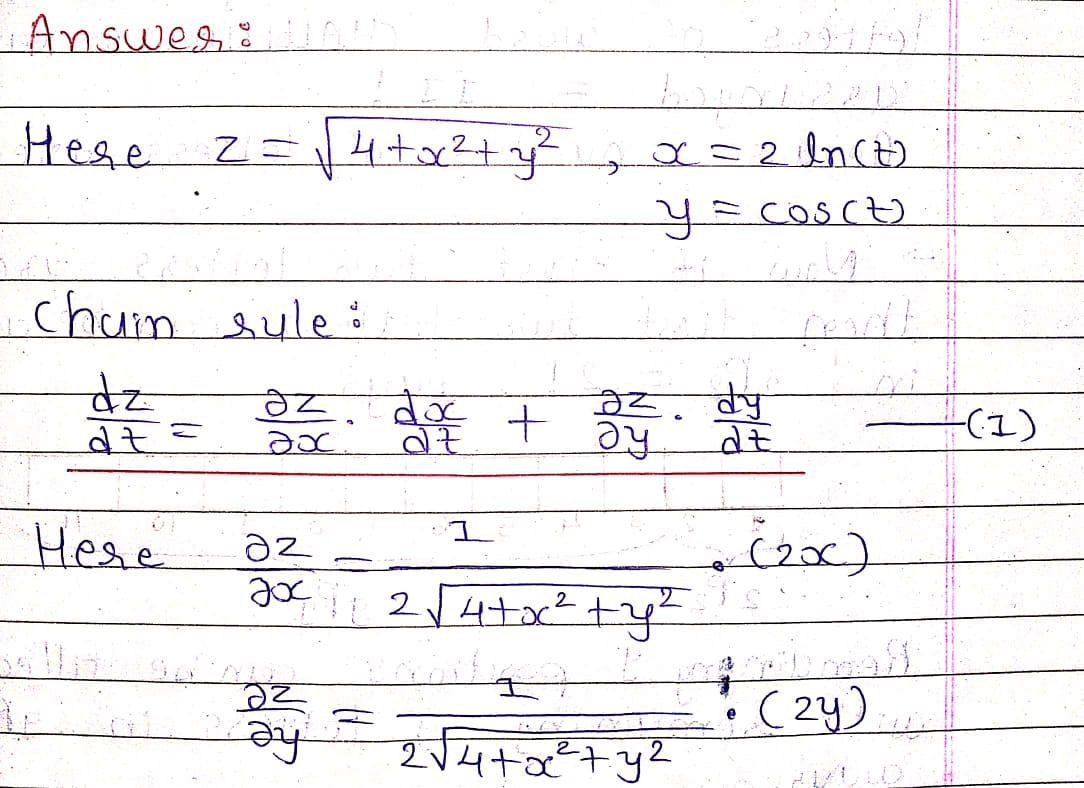 Answer:
Here z = √(4+x²+y²) , x = 2 ln(t)
y = cos(t)
Chain rule:
dz/dt = ∂z/∂x · dx/dt + ∂z/∂y · dy/dt —(1)
Here ∂z/∂x = 1/(2√(4+x²+y²)) · (2x)
∂z/∂y = 1/(2√(4+x²+y²)) · (2y)